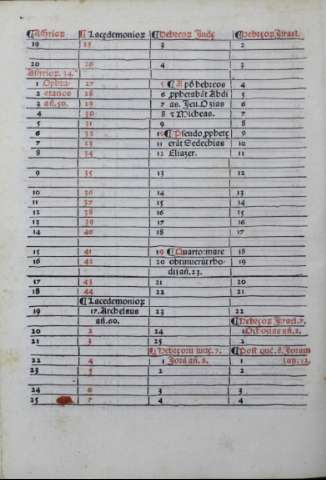 ¶Assirioꝝ ¶Lacedemonioꝝ ¶Hebreoꝝ Jude ¶Hebreoꝝ Israel.
19 25 3 2
20 26 4 3
Assirioꝝ. 34.ᵘˢ
1 Ophra- 27 5 ¶Apð hebreos 4
2 etanes 28 6 ꝓphetabāt Abdi 5
3 añ. 50. 29 7 as. Jeu. Ozias 6
4 30 8 ⁊ Micheas. 7
5 31 9 8
6 32 10 ¶Pseudo ꝓphetę 9
7 33 11 erāt Sedechias 10
8 34 12 Eliazer. 11
9 35 13 12
10 36 14 13
11 37 15 14
12 38 16 15
13 39 17 16
14 40 18 17
15 41 19 ¶Quarto mare 18
16 42 20 obtinuerūt rho- 19
dii añ. 23.
17 43 21 20
18 44 22 21
¶Lacedemonioꝝ
19 17. Archelaus 23 22
añ. 60. ¶Hebreoꝝ Israel. 7.
20 2 24 1 añ. 2.
21 3 25 2
¶Hebreoꝝ iude. 7. ¶Post quē. 8. Joram
22 4 1 Jorā añ. 8. 1 añ. 12.
23 5 2 2
24 6 3 3
25 7 4 4